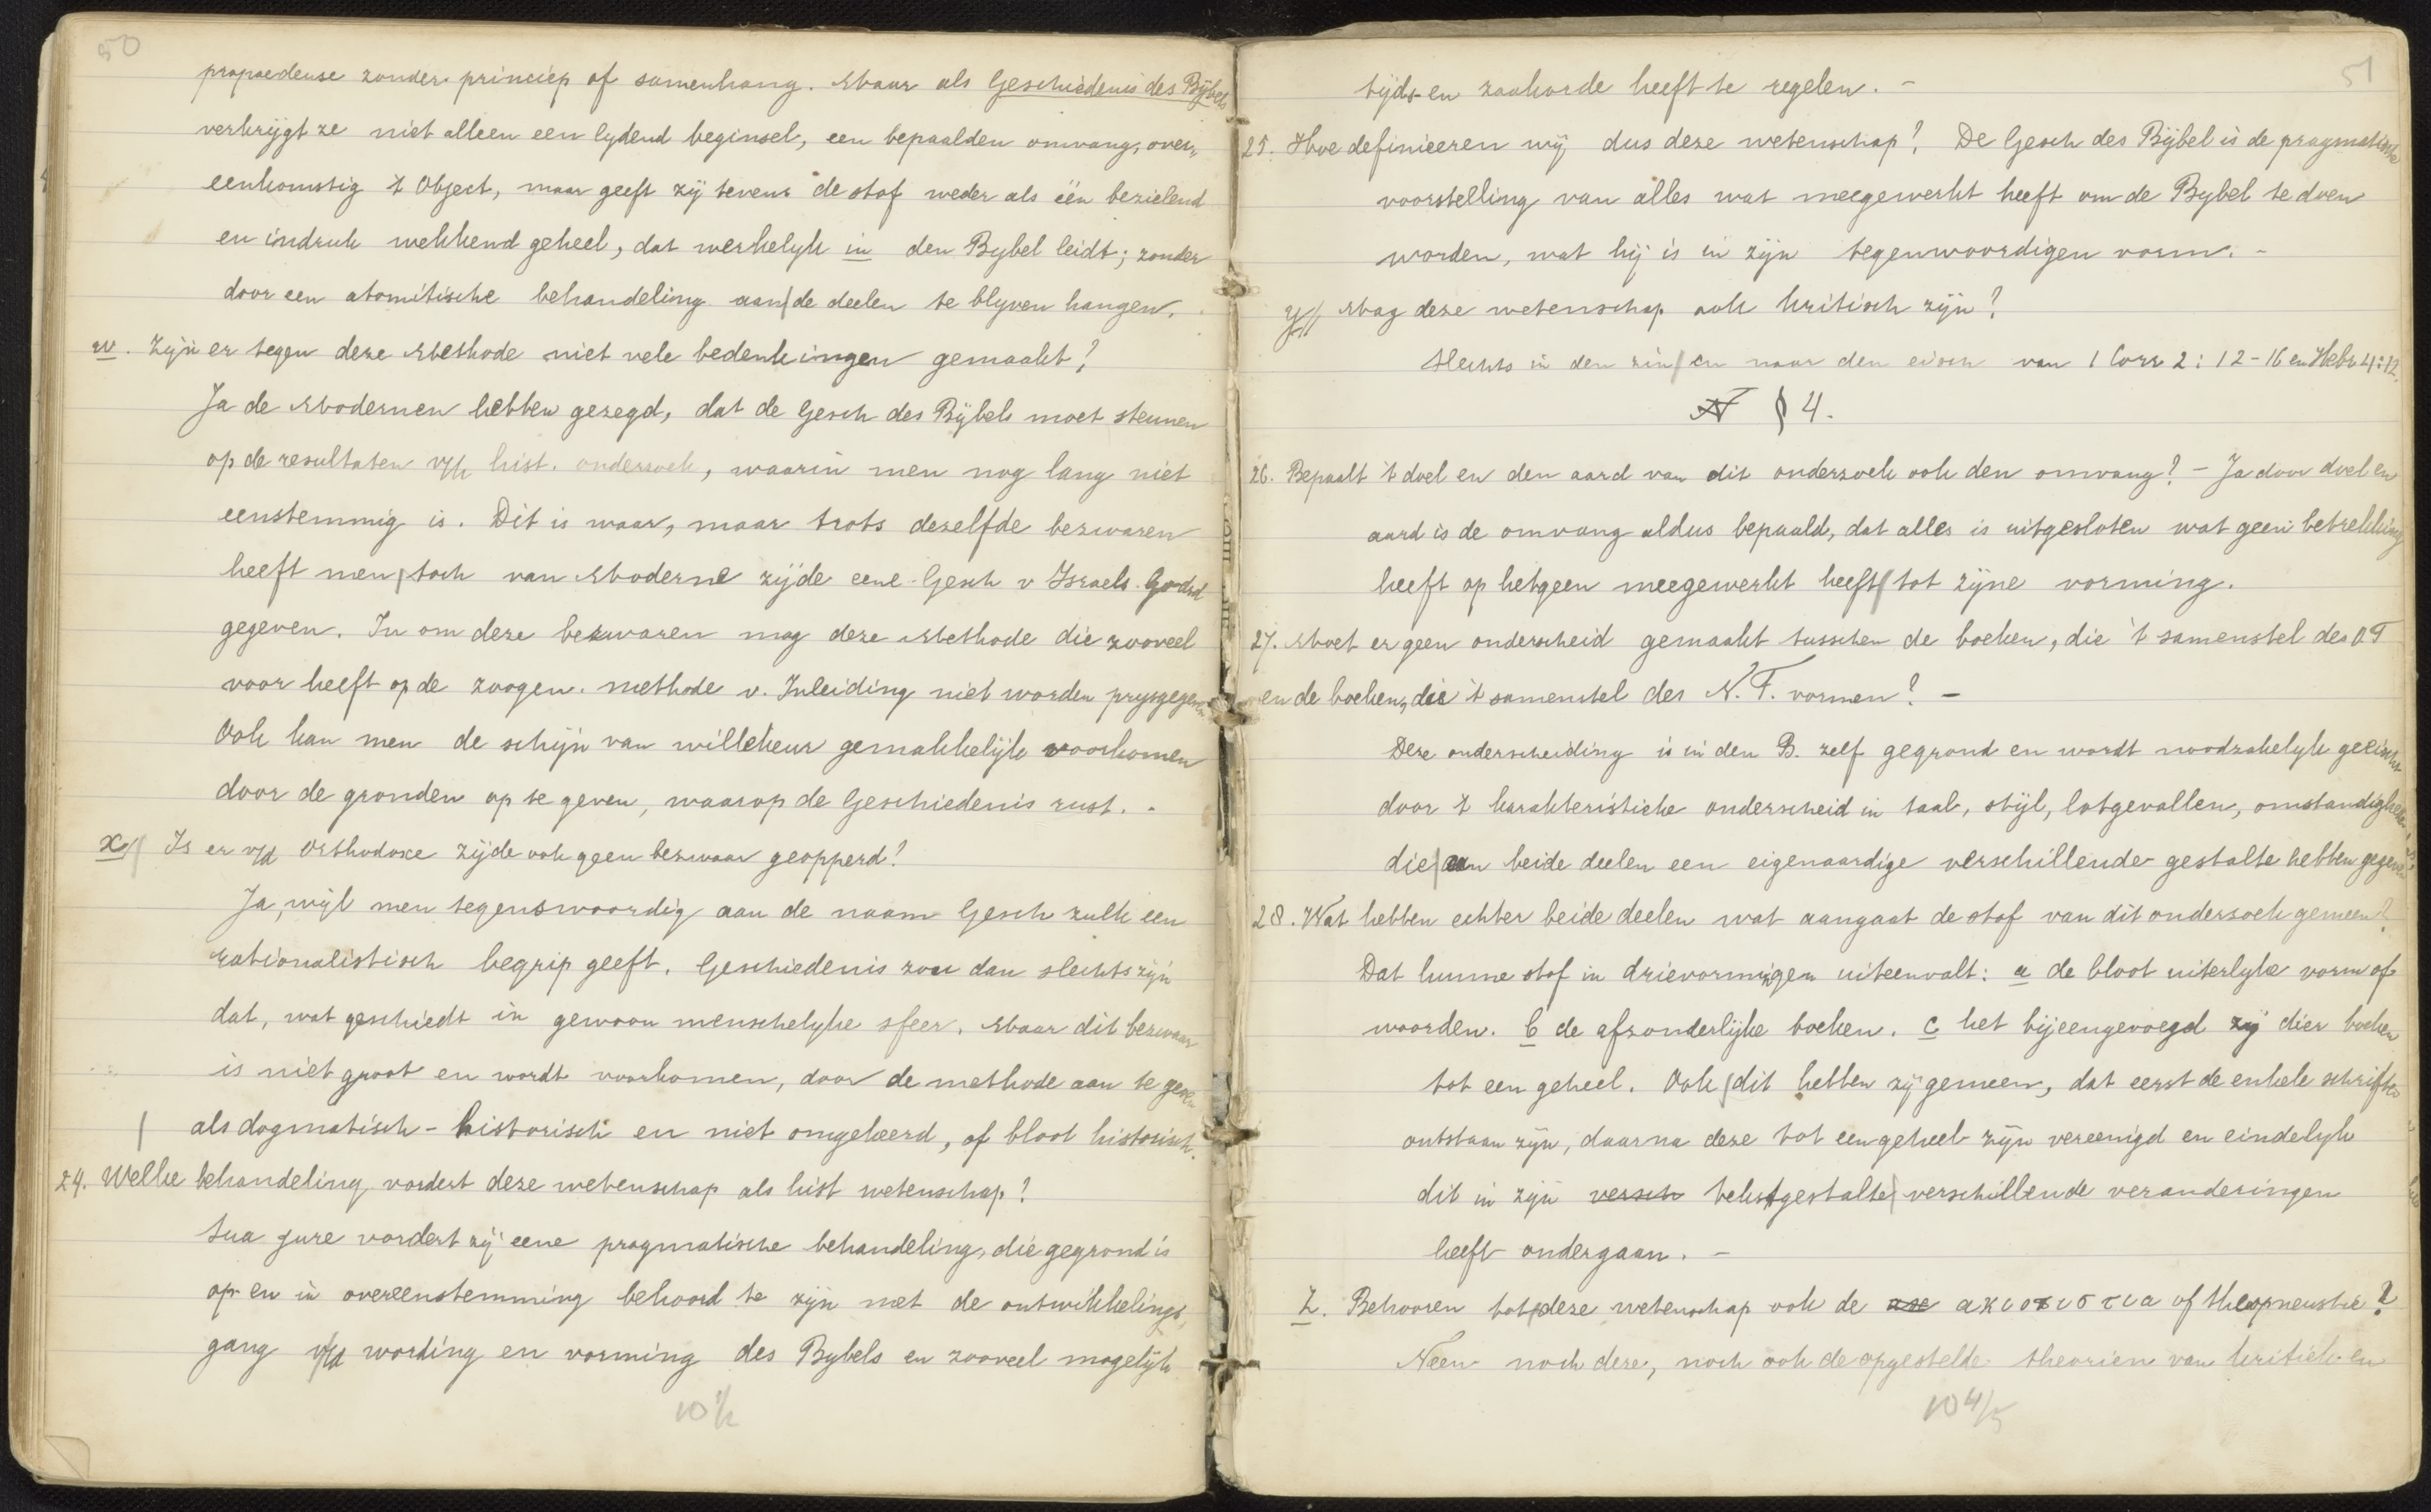 50
propaedeuse zonder princiep of samenhang. Maar als Geschiedenis des Bijbels
verkrijgt ze niet alleen een lydend beginsel, een bepaalden omvang, over,,
eenkomstig 't Object, maar geeft zij tevens de stof weder als één bezielend
en indruk wekkend geheel, dat werkelyk in den Bybel leidt; zonder
door een atomitische behandeling aan de deelen te blyven hangen.
w. Zijn er tegen deze Methode niet vele bedenkingen gemaakt?
Ja de Modernen hebben gezegd, dat de Gesch des Bijbels moet steunen
op de resultaten v/h hist. onderzoek, waarin men nog lang niet
eenstemmig is. Dit is waar, maar trots dezelfde bezwaren
heeft men toch van Moderne zijde eene Gesch v Israels Godsd
gegeven. In om deze bezwaren mag deze Methode die zooveel
voor heeft op de zoogen. methode v. Inleiding niet worden prysgegeven
Ook kan men de schijn van willekeur gemakkelijk voorkomen
door de gronden op te geven, waarop de Geschiedenis rust. -
x Is er v/d Orthodoxe zijde ook geen bezwaar geopperd?
Ja, wijl men tegenswoordig aan de naam Gesch zulk een
rationalistisch begrip geeft. Geschiedenis zou dan slechts zijn
dat, wat geschiedt in gewoon menschelyke sfeer. Maar dit bezwaar
is niet groot en wordt voorkomen, door de methode aan te geven
als dogmatisch - historisch en niet omgekeerd, of bloot historisch.
24. Welke behandeling vordert deze wetenschap als hist wetenschap?
Sua jure vordert zij eene pragmatische behandeling, die gegrond is
op en in overeenstemming behoord te zijn met de ontwikkelings,
gang v/d wording en vorming des Bybels en zooveel mogelijk
10 1/2
51
tijds- en zaakorde heeft te regelen. -
25. Hoe definieeren wij dus deze wetenschap? De Gesch des Bijbel is de pragmatische
voorstelling van alles wat meegewerkt heeft om de Bybel te doen
worden, wat hij is in zijn tegenwoordigen vorm. -
y Mag deze wetenschap ook kritisch zijn?
Slechts in den zin en naar den eisch van 1 Corr 2: 12-16 en Hebr 4:12.
§ 4.
26. Bepaalt 't doel en den aard van dit onderzoek ook den omvang? - Ja door doel en
aard is de omvang aldus bepaald, dat alles is uitgesloten wat geen betrekking
heeft op hetgeen meegewerkt heeft tot zijne vorming.
27. Moet er geen onderscheid gemaakt tusschen de boeken, die 't samenstel des O T
en de boeken, die 't samenstel des N. T. vormen? -
Deze onderscheiding is in den B. zelf gegrond en wordt noodzakelyk geeischt
door 't karakteristieke onderscheid in taal, stijl, lotgevallen, omstandigheden
die aan beide deelen een eigenaardige verschillende gestalte hebben gegeven
28. Wat hebben echter beide deelen wat aangaat de stof van dit onderzoek gemeen?
Dat hunne stof in drievormigen uiteenvalt: a de bloot uiterlyke vorm of
woorden. b de afzonderlijke boeken. c het bijeengevoegd zij dier boeken
tot een geheel. Ook dit hebben zij gemeen, dat eerst de enkele schriften
ontstaan zijn, daarna deze tot een geheel zijn vereenigd en eindelyk
dit in zijn versch tekstgestalte verschillende veranderingen
heeft ondergaan. -
z. Behooren tot deze wetenschap ook de αξιοπιστια of theopneustie?
Neen noch deze, noch ook de opgestelde theorien van kritiek en
10 4/5